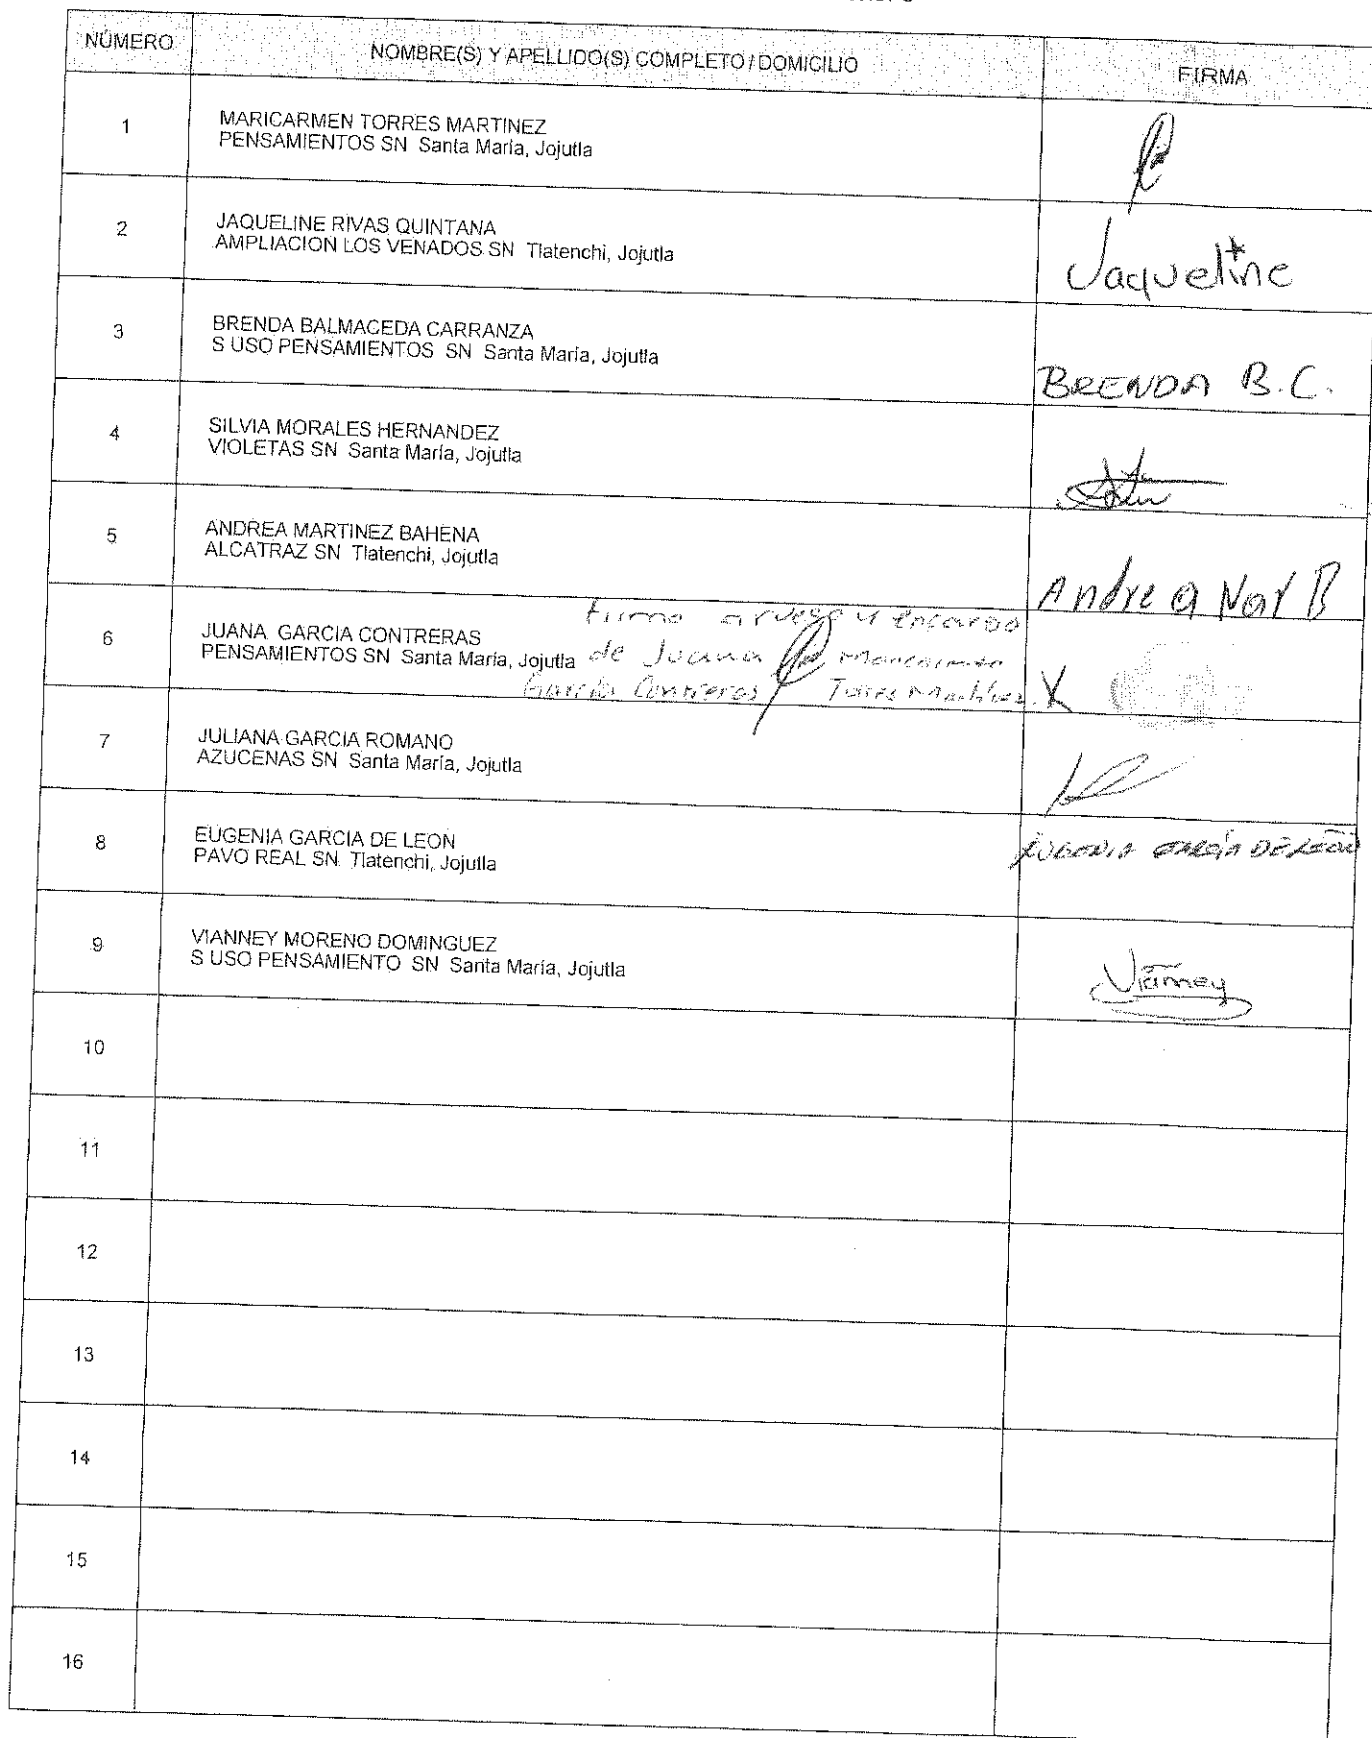 NÚMERO
NOMBRE(S) Y APELLIDO(S) COMPLETO / DOMICILIO
FIRMA
1
MARICARMEN TORRES MARTINEZ
PENSAMIENTOS SN Santa María, Jojutla
2
JAQUELINE RIVAS QUINTANA
AMPLIACION LOS VENADOS SN Tlatenchi, Jojutla
Jaqueline
3
BRENDA BALMACEDA CARRANZA
S USO PENSAMIENTOS SN Santa María, Jojutla
BRENDA B.C.
4
SILVIA MORALES HERNANDEZ
VIOLETAS SN Santa María, Jojutla
5
ANDREA MARTINEZ BAHENA
ALCATRAZ SN Tlatenchi, Jojutla
Andrea Mar B
6
JUANA GARCIA CONTRERAS
PENSAMIENTOS SN Santa María, Jojutla
Firma a ruego y encargo
de Juana Maricarmen
García Contreras Torres Martínez X
7
JULIANA GARCIA ROMANO
AZUCENAS SN Santa María, Jojutla
8
EUGENIA GARCIA DE LEON
PAVO REAL SN Tlatenchi, Jojutla
EUGENIA GARCÍA DE LEÓN
9
VIANNEY MORENO DOMINGUEZ
S USO PENSAMIENTO SN Santa María, Jojutla
Vianney
10
11
12
13
14
15
16